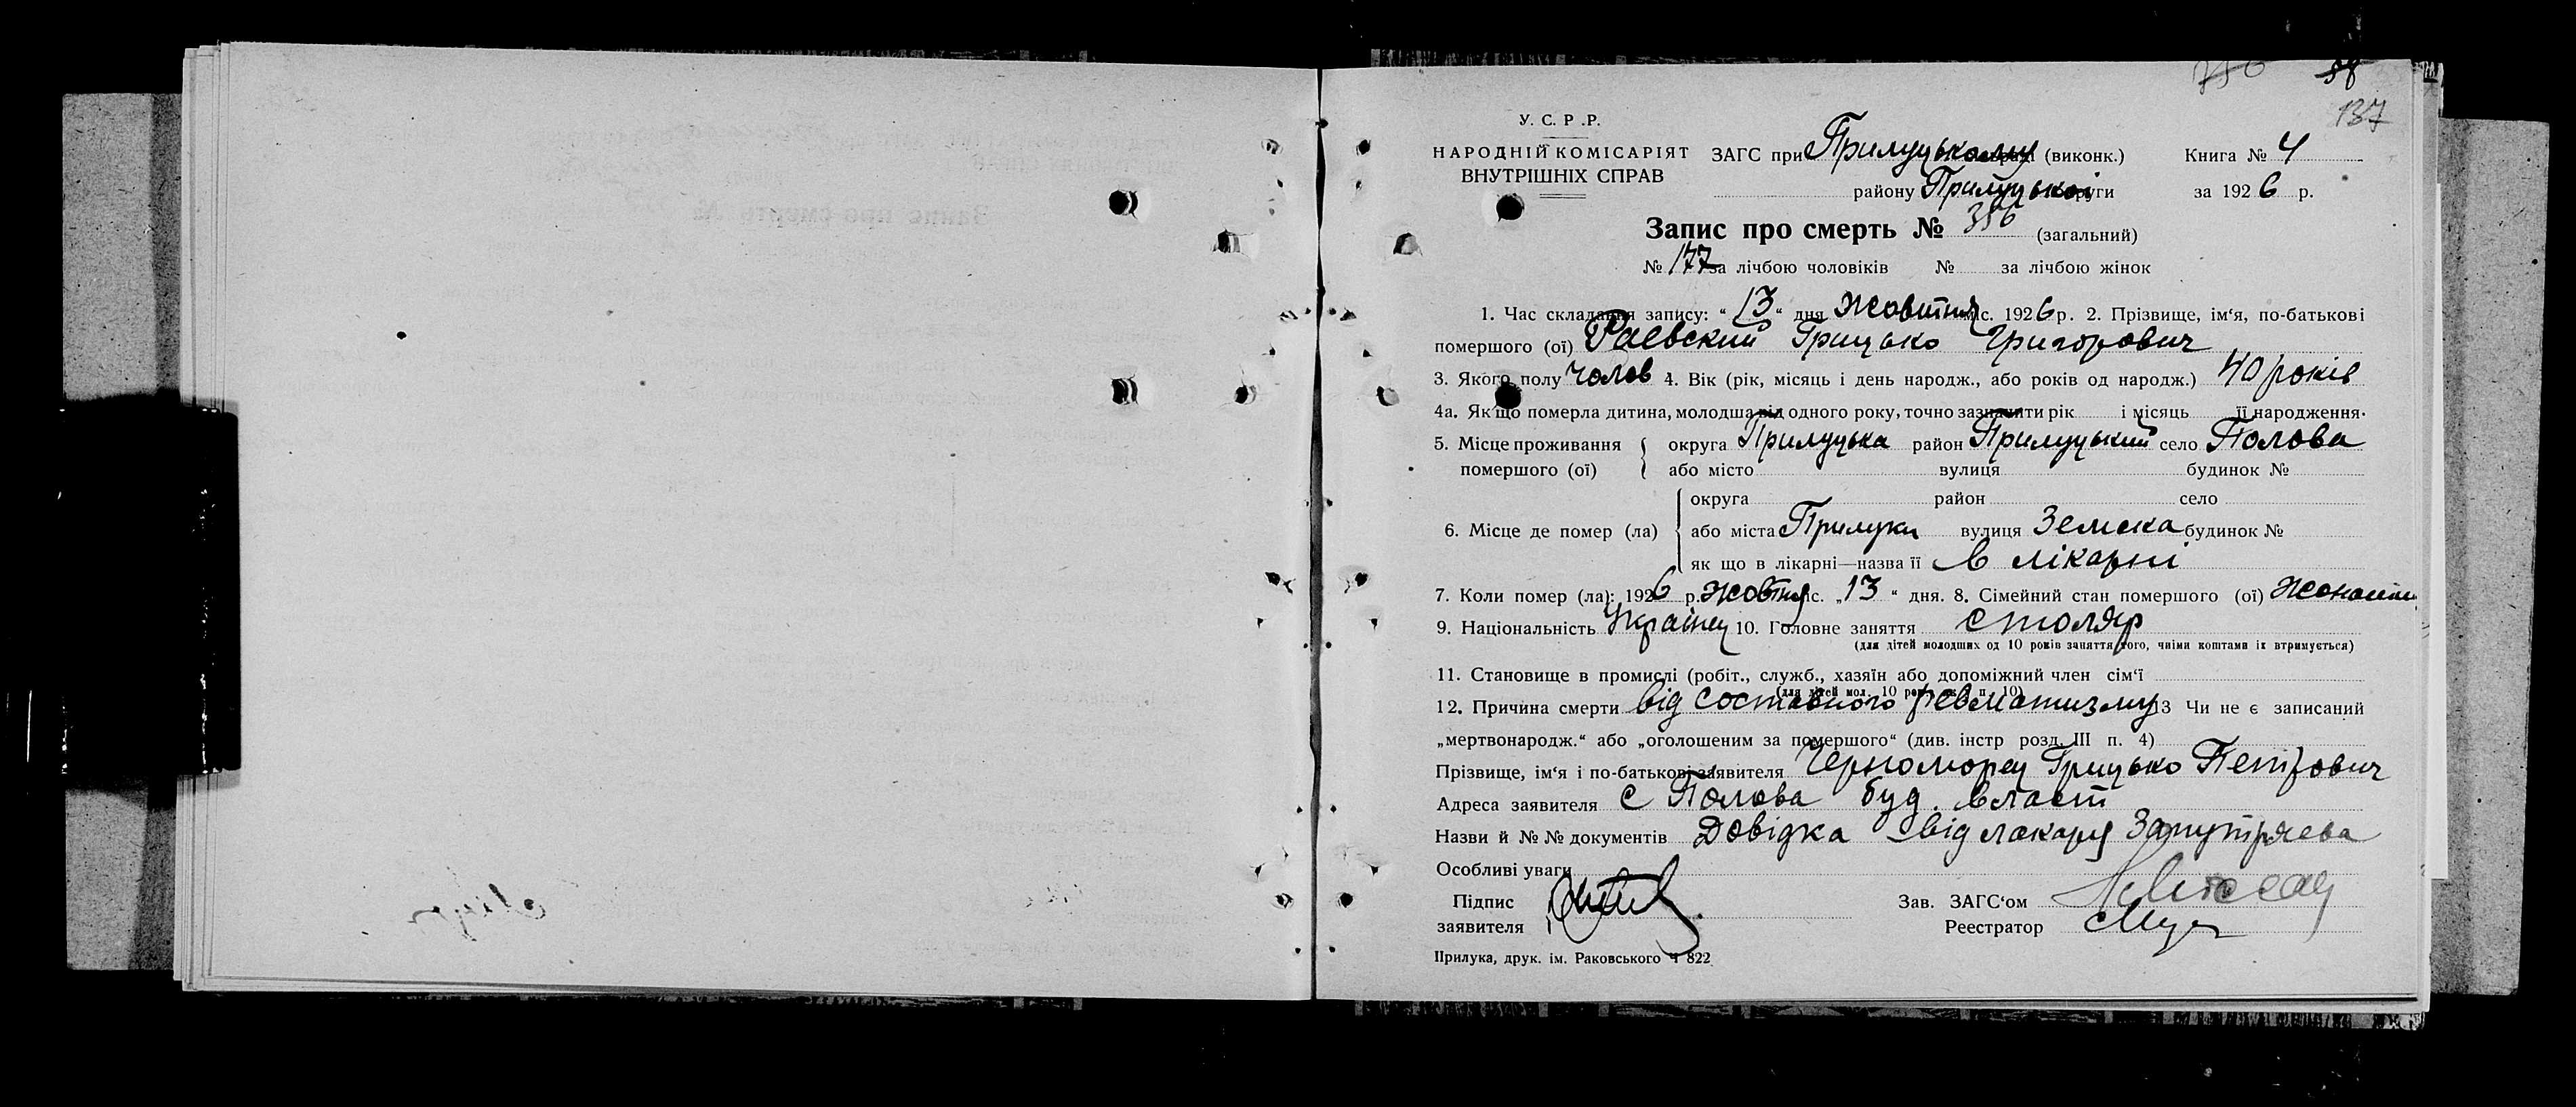 137
У. С. Р. Р.
НАРОДНІЙ КОМІСАРІЯТ
ВНУТРІШНІХ СПРАВ
ЗАГС при Прилуцькому (виконк.) Книга № 4
району Прилуцької округи за 1926 р.
Запис про смерть № 356 (загальний)
№ 177 за лічбою чоловіків № за лічбою жінок
1. Час складання запису: “ 13 “ дня жовтня міс. 1926 р. 2. Прізвище, ім‘я, по-батькові
помершого (ої) Раевский Грицько Григорович
3. Якого полу чолов 4. Вік (рік, місяць і день народж., або років од народж.) 40 років
4а. Як що померла дитина, молодша від одного року, точно зазначити рік і місяць її народження.
5. Місце проживання округа Прилуцька район Прилуцький село Полова
помершого (ої) або місто вулиця будинок №
округа район село
6. Місце де помер (ла) або міста Прилуки вулиця Земска будинок №
як що в лікарні—назва її в лікарні
7. Коли помер (ла): 1926 р. жовтня міс. „ 13 “ дня. 8. Сімейний стан помершого (ої)
9. Національність Українец 10. Головне заняття столяр
(для дітей молодших од 10 років заняття того, чиїми коштами їх втримується)
11. Становище в промислі (робіт., служб., хазяїн або допоміжний член сім‘ї
12. Причина смерти від составного ревматизму 13 Чи не є записаний
„мертвонародж.“ або „оголошеним за помершого“ (див. інстр розд. III п. 4)
Прізвище, ім‘я і по-батькові заявителя Черноморец Грицько Петрович
Адреса заявителя с Полова буд. власт
Назви й №№ документів Довідка від лекаря
Особливі уваги
Підпис Зав. ЗАГС‘ом
заявителя Реестратор
Прилука, друк. ім. Раковського Ч 822